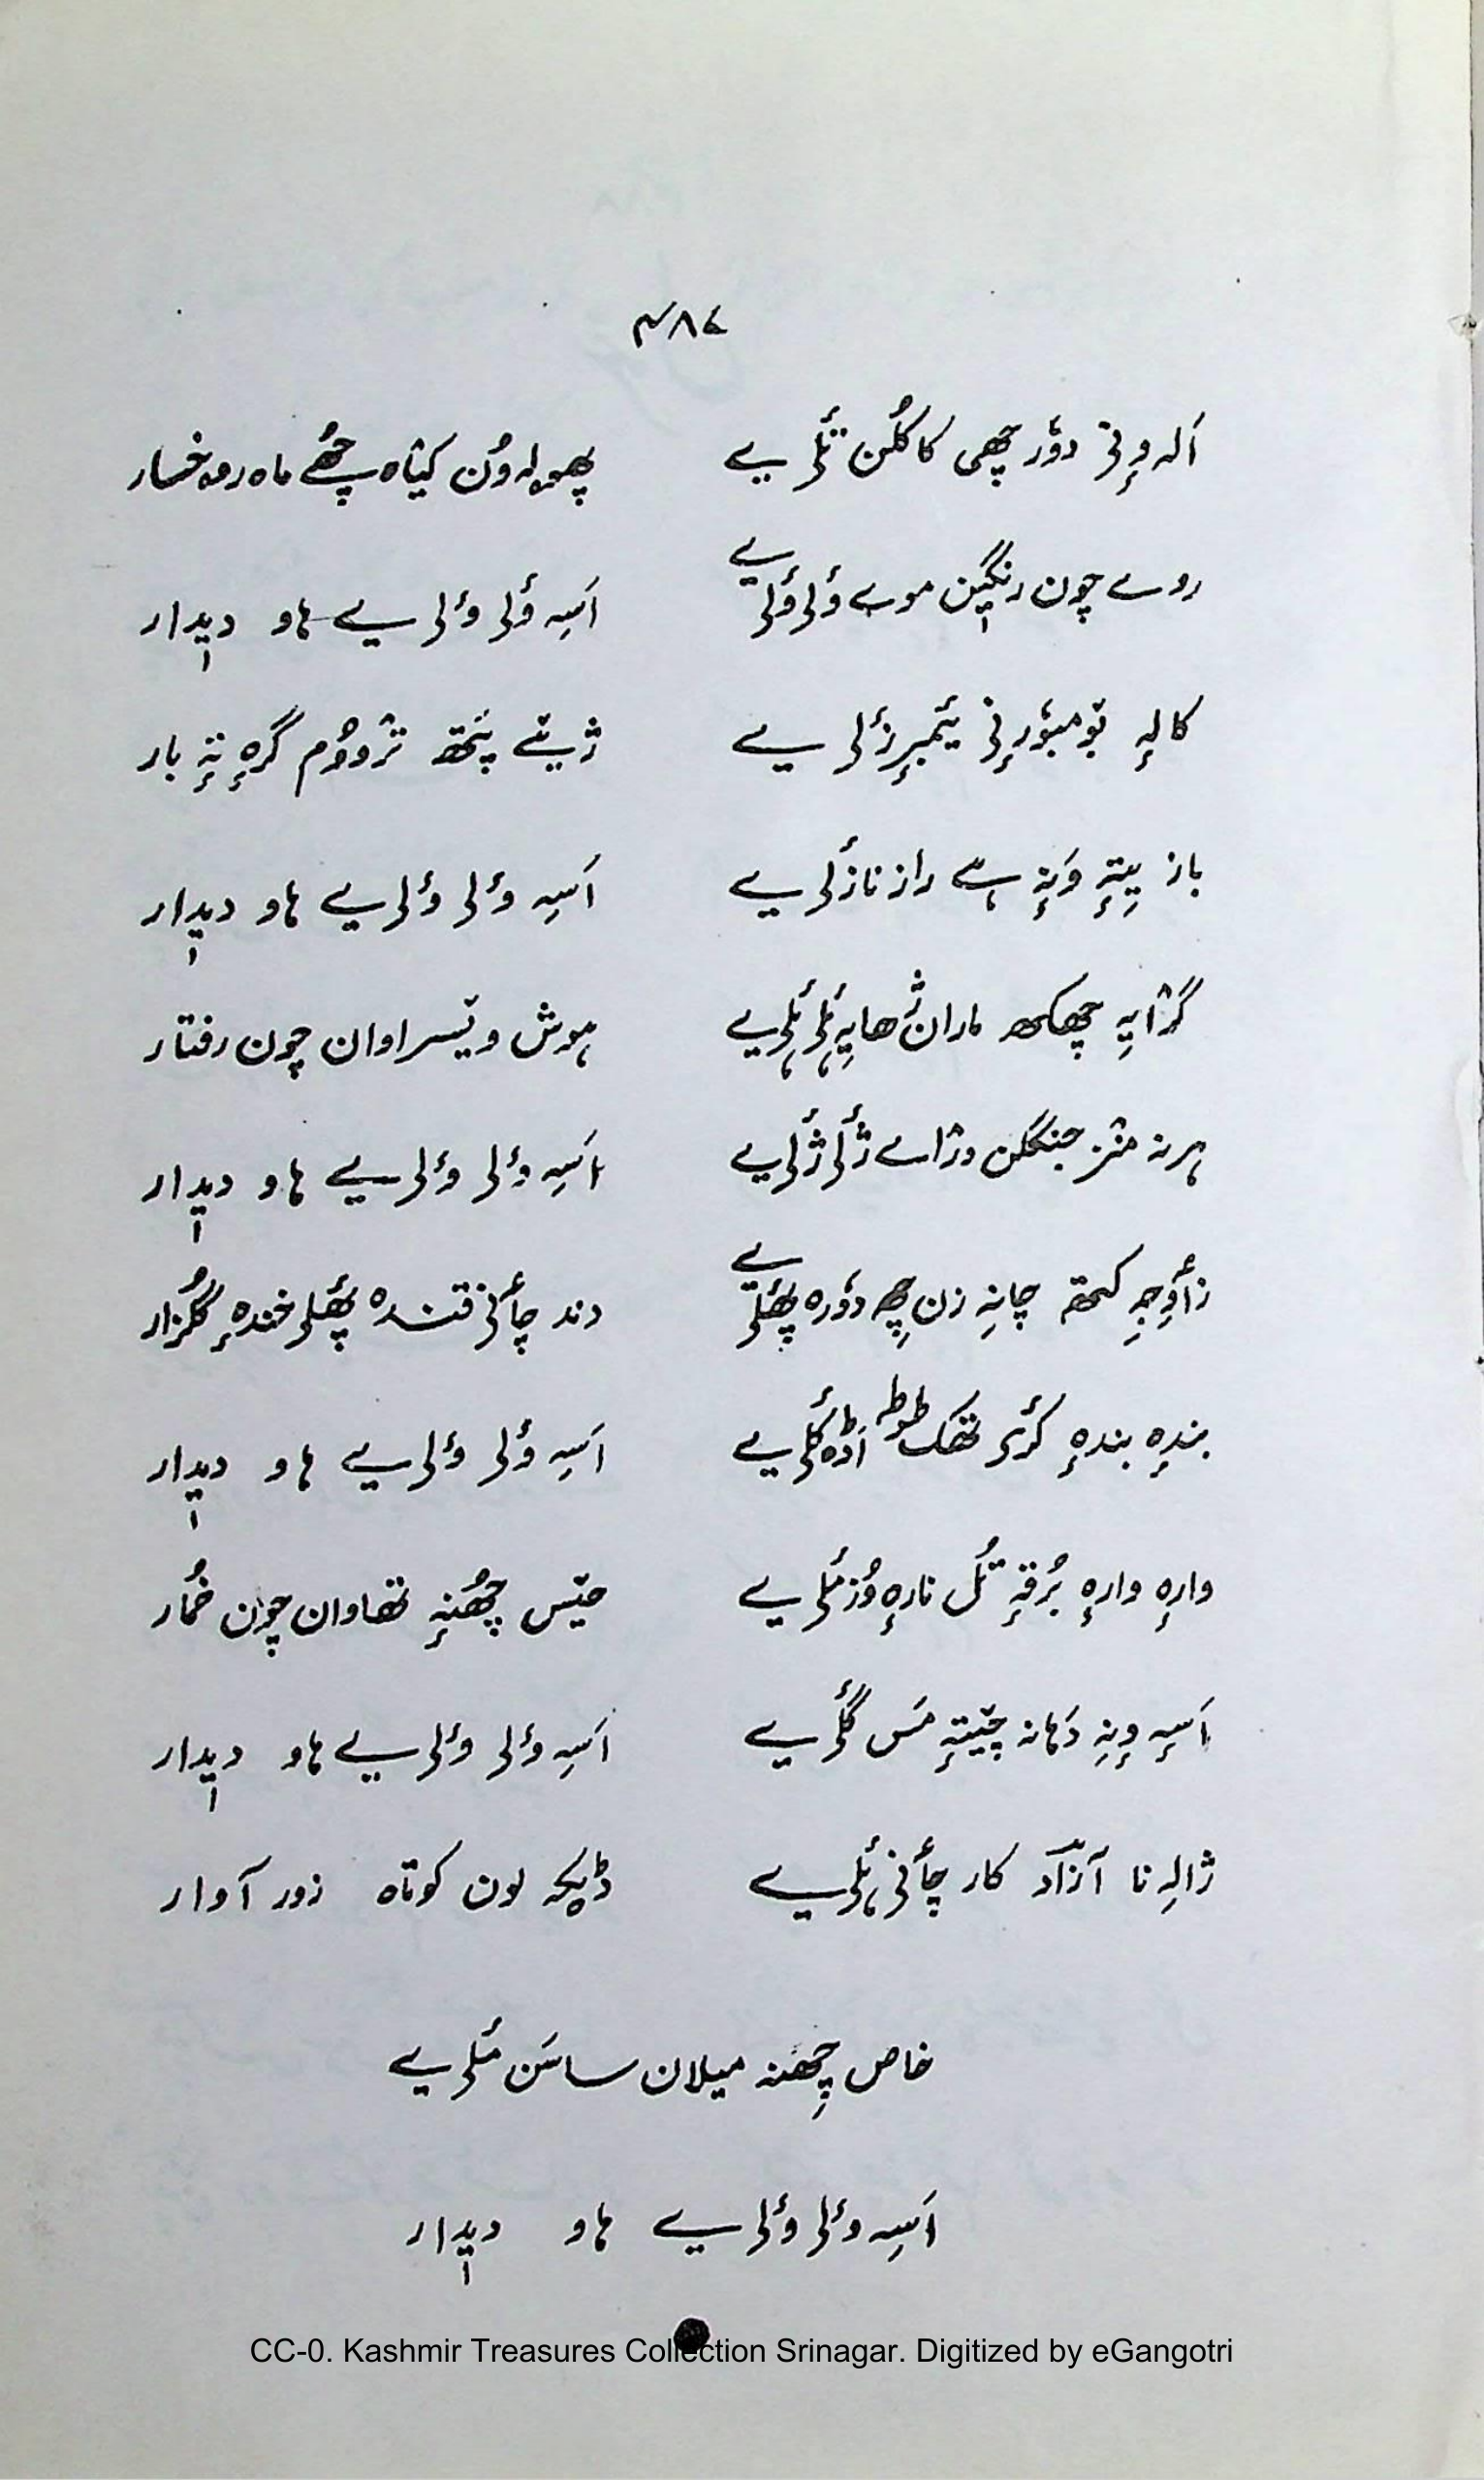 ۴۸۷
اَلہ وٕنۍ دوٗر چھی کاکُلن تٔلۍ یے پھۄلہ وُن کیٛاہ چُھے ماہ رو رخسار
روے چون رنگین موے ؤلۍ ؤلۍ یے اَسہِ ؤلۍ ؤلۍ یے ہاو دیدار
کالہٕ بۄمبوٗرٕنۍ یٔمبرٕزٔلۍ یے ژیٚے پَتھ ترٛووُم گرٕہ تہٕ بار
باز یِتہٕ وَنہٕ ہے راز نازٔلۍ یے اَسہِ ؤلۍ ؤلۍ یے ہاو دیدار
گرٛایہِ چھکھ ماران ژٔھایہِ ۂلۍ ۂلۍ یے ہوش ویٚسراوان چون رفتار
ہرنہ منٛز جنگلن درٛاے ژٔلۍ ژٔلۍ یے اَسہِ ؤلۍ ؤلۍ یے ہاو دیدار
زٲوِجہِ کتھہ چانہِ زن چھِ دوٗرہ پھٔلۍ یے دند چٲنۍ قندہ پھٔلۍ خندہٕ گُلزار
بندہٕ بندہٕ کٔرۍ تھک طوطہ اَڈہ کٔلۍ یے اَسہِ ؤلۍ ؤلۍ یے ہاو دیدار
وارہٕ وارہٕ بُرقہٕ تُل نارہٕ وُزمٔلۍ یے حیٚس چُھنہٕ تھاوان چون خُمار
اَسہِ وٕنہِ دَہانہ چیٚتہٕ مَس گٔلۍ یے اَسہِ ؤلۍ ؤلۍ یے ہاو دیدار
ژالہِ نا آزاد کار چٲنۍ ۂلۍ یے ڈیکہ لون کوتاہ زور آوار
خاص چھِنہ میلان ساسَن مٔلۍ یے
اَسہِ ؤلۍ ؤلۍ یے ہاو دیدار
CC-0. Kashmir Treasures Collection Srinagar. Digitized by eGangotri